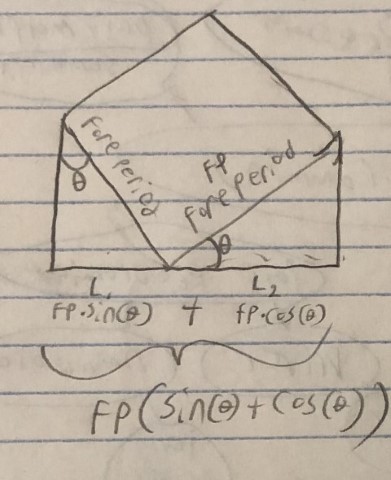 Fore period
FP
Fore period
θ
θ
L₁ L₂
FP·sin(θ) + FP·cos(θ)
FP(sin(θ)+cos(θ))